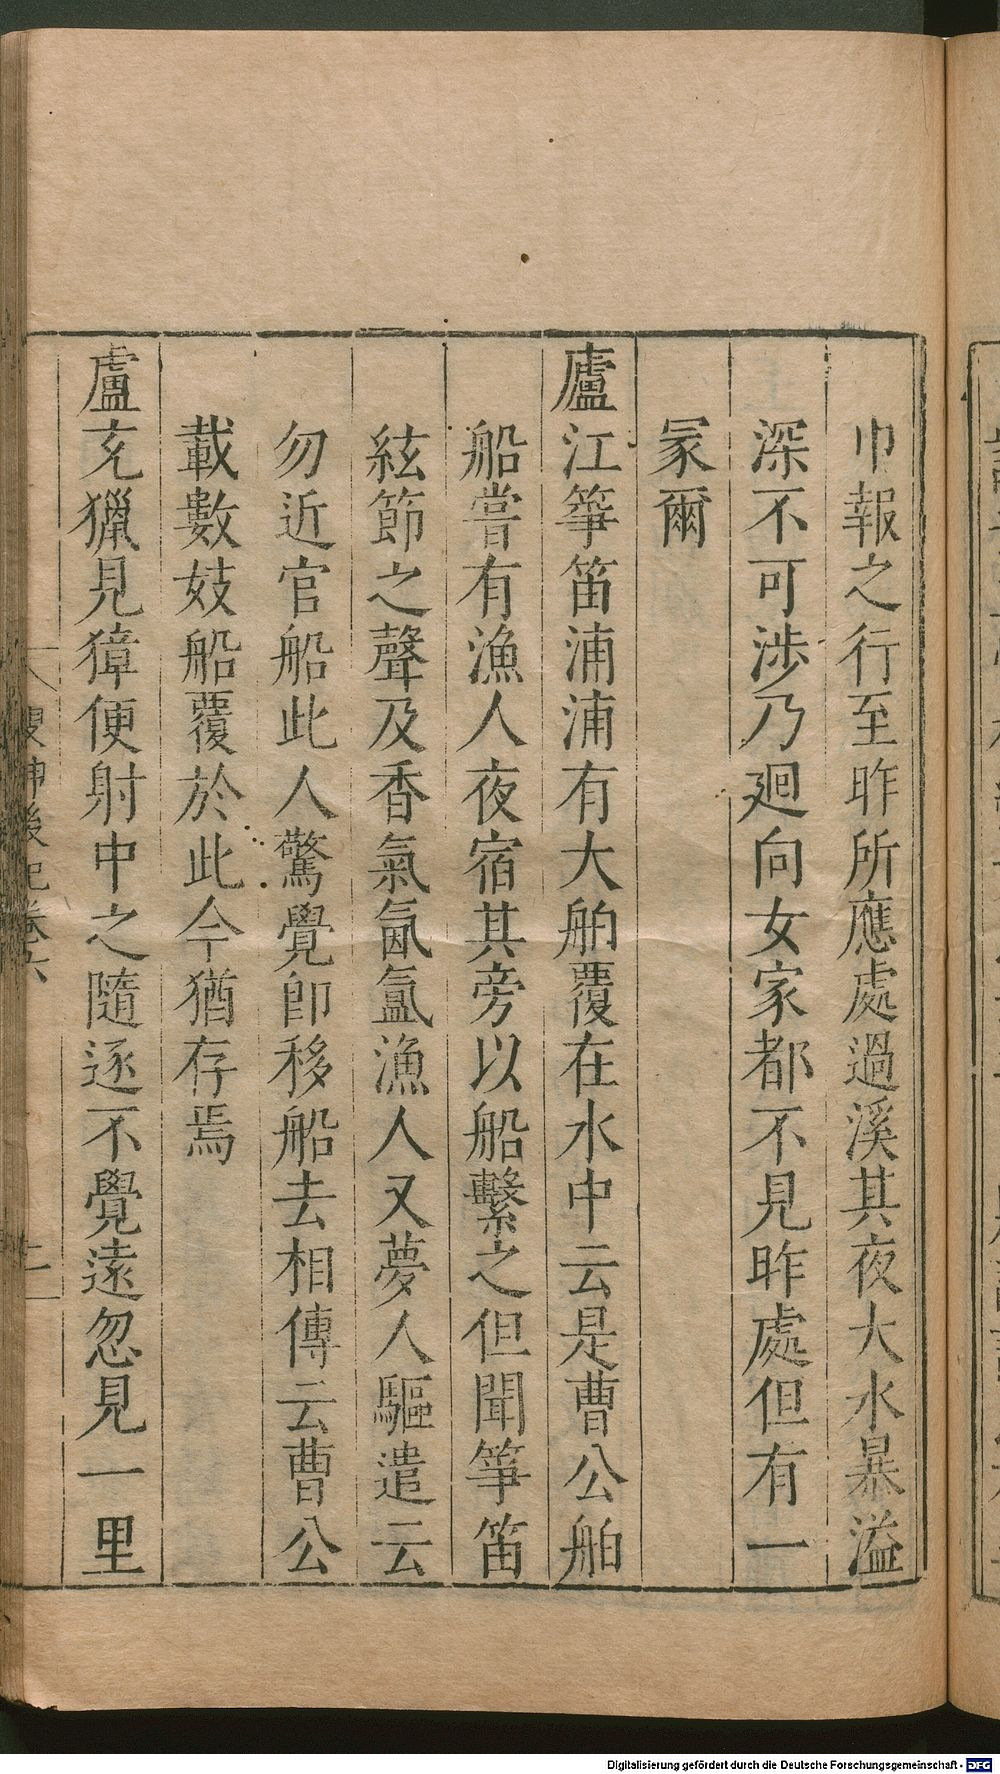 巾報之行至昨所應處過溪其夜大水暴溢
深不可涉乃廻向女家都不見昨處但有一
冡爾
廬江箏笛浦浦有大舶覆在水中云是曹公舶
船嘗有漁人夜宿其旁以船繫之但聞箏笛
絃節之聲及香氣氤氳漁人又夢人驅遣云
勿近官船此人驚覺卽移船去相傳云曹公
載數妓船覆於此今猶存焉
盧充獵見獐便射中之隨逐不覺遠忽見一里
搜神後記卷六
Digitalisierung gefördert durch die Deutsche Forschungsgemeinschaft - DFG